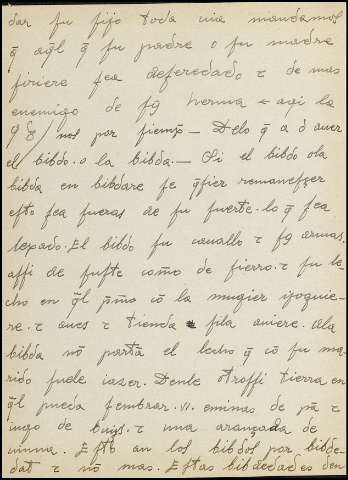 dar fu fijo toda uia mandamos
q̄ aq̄l q̄ fu padre o fu madre
firiere fea deferedado τ de mas
enemigo de fꝯ herma aqi la
nos por fiemp̄ — Delo q̄ a ð auer
el bibdo. o la bibda. — Si el bibdo ola
bibda en bibdare fe q̄fier remanefçer
efto fea fueras de fu fuerte. lo q̄ fea
lexado. El bibdo fu cauallo τ fꝯ armas.
affi de fufte como de fierro. τ fu le-
cho en q̄l p̄mo cō la mugier
re. τ aues τ tienda fila ouiere. Ala
bibda nō partā el lecho q̄ cō fu ma-
rido fuele iazer. Denle otroffi tierra en
q̄l pueda fembrar .VI. eminas de pā τ
iugo de bu̅y̅s. τ una arançada de
uinna. Efto an los bibdos por bibde-
dat τ nō mas. Eftas bibdedades den